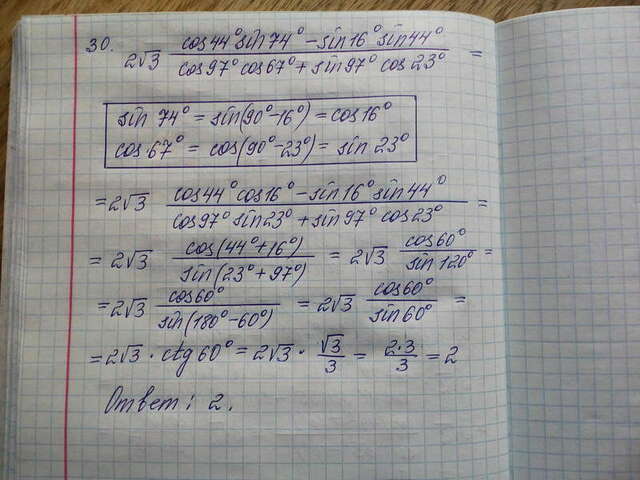 30. 2√3 (cos44° sin74° - sin16° sin44°)/(cos97° cos67° + sin97° cos23°) =
sin 74° = sin(90°-16°) = cos16°
cos 67° = cos(90°-23°) = sin 23°
= 2√3 (cos44° cos16° - sin16° sin44°)/(cos97° sin23° + sin97° cos23°) =
= 2√3 cos(44°+16°)/sin(23°+97°) = 2√3 cos60°/sin120° =
= 2√3 cos60°/sin(180°-60°) = 2√3 cos60°/sin60° =
= 2√3 · ctg 60° = 2√3 · √3/3 = 2·3/3 = 2
Ответ: 2.